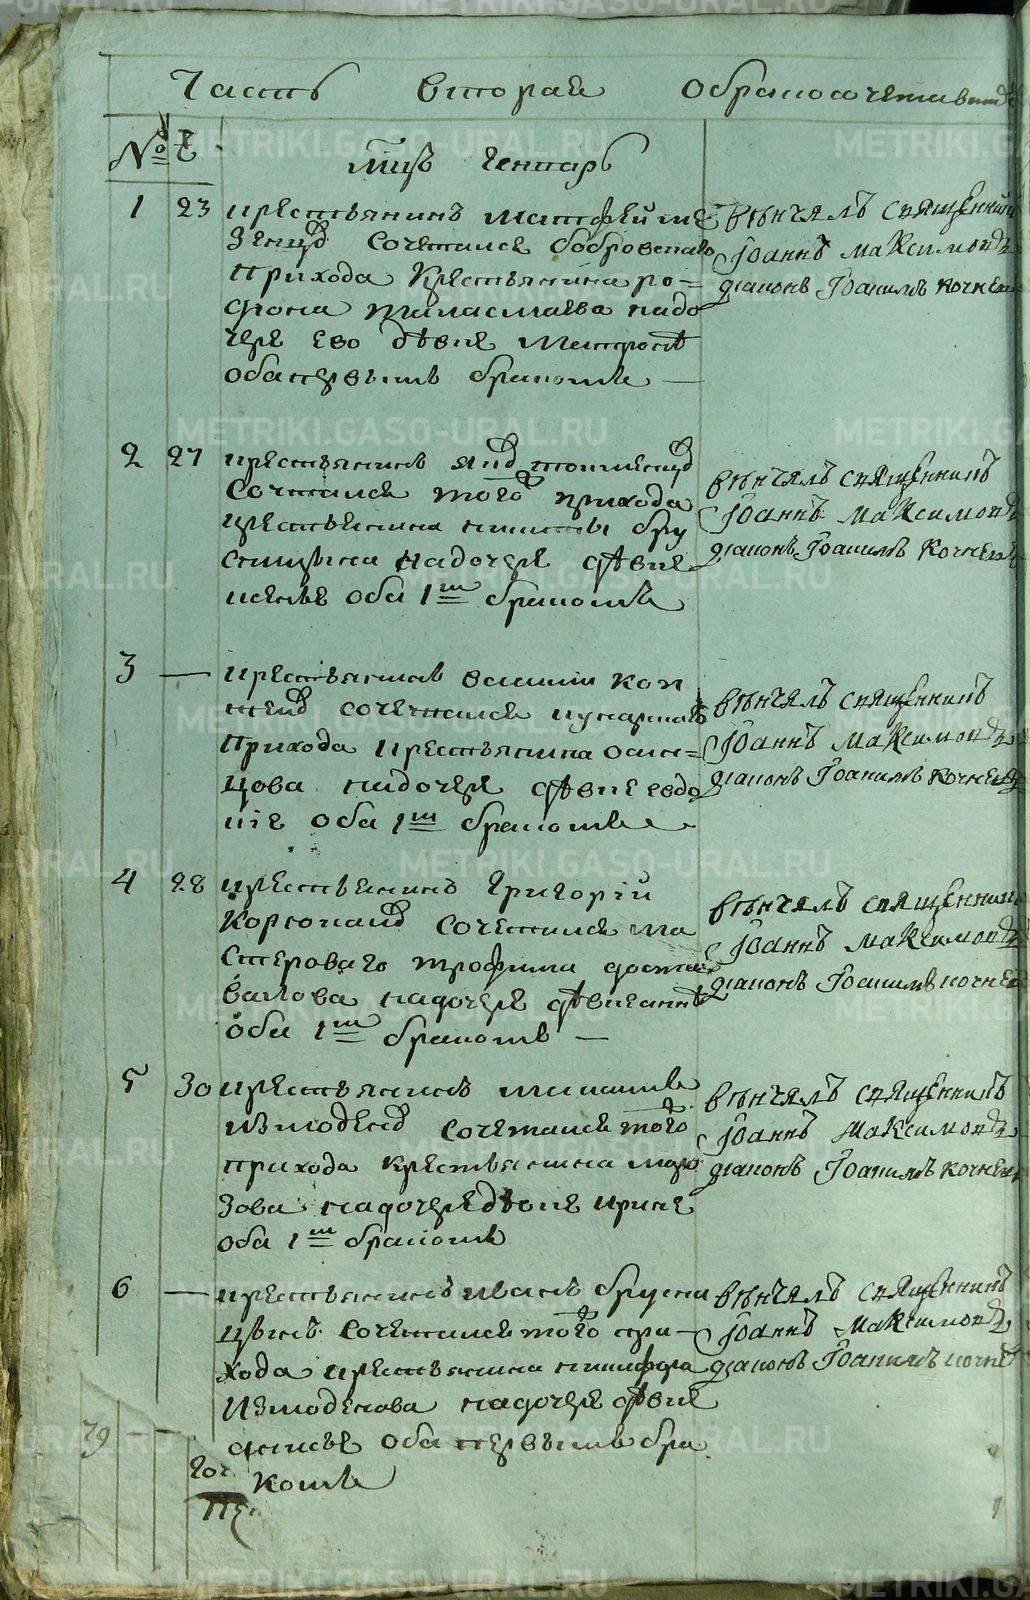 Часть вторая о бракосочетавши
№ Ч
мцъ генварь
1 23 крестьянинъ Матфей
сочетался бобровскаго
прихода крестьянина ро=
дiона надо
чере его девке Матроне
оба первымъ бракомъ
венчалъ священник
Iоаннъ Максимов
диаконъ Iоакимъ кочнев
2 27 крестьянинъ
сочтался того прихода
крестьянина никиты бру
сницына надочере девке
оба 1м бракомъ
венчалъ священникъ
Iоаннъ Максимов
диаконъ Iоакимъ Кочнев
3 — крестьянинъ василiй коп
сочетался
прихода крестьянина
цова надочере девке евдо
кiе оба 1м бракомъ
венчалъ священникъ
Iоаннъ Максимов
диаконъ Iоакимъ кочнев
4 28 крестьянинъ григорiй
сочетался ма
стероваго трофима
валова надочере девке анне
оба 1м бракомъ
венчалъ священник
Iоаннъ Максимов
диаконъ Iоакимъ кочнев
5 30 крестьянинъ
измоденов сочетался того
прихода крестьянина моро
зова надочере девке ирине
оба 1м бракомъ
венчалъ священникъ
Iоаннъ Максимов
диаконъ Iоакимъ кочнев
6 — крестьянинъ иванъ брусни
цынъ сочетался того при
хода крестьянина никифора
измоденова надочере девке
оба первымъ бра
комъ
венчалъ священникъ
Iоаннъ Максимов
диаконъ Iоакимъ кочнев
39
METRIKI.GASO-URAL.RU